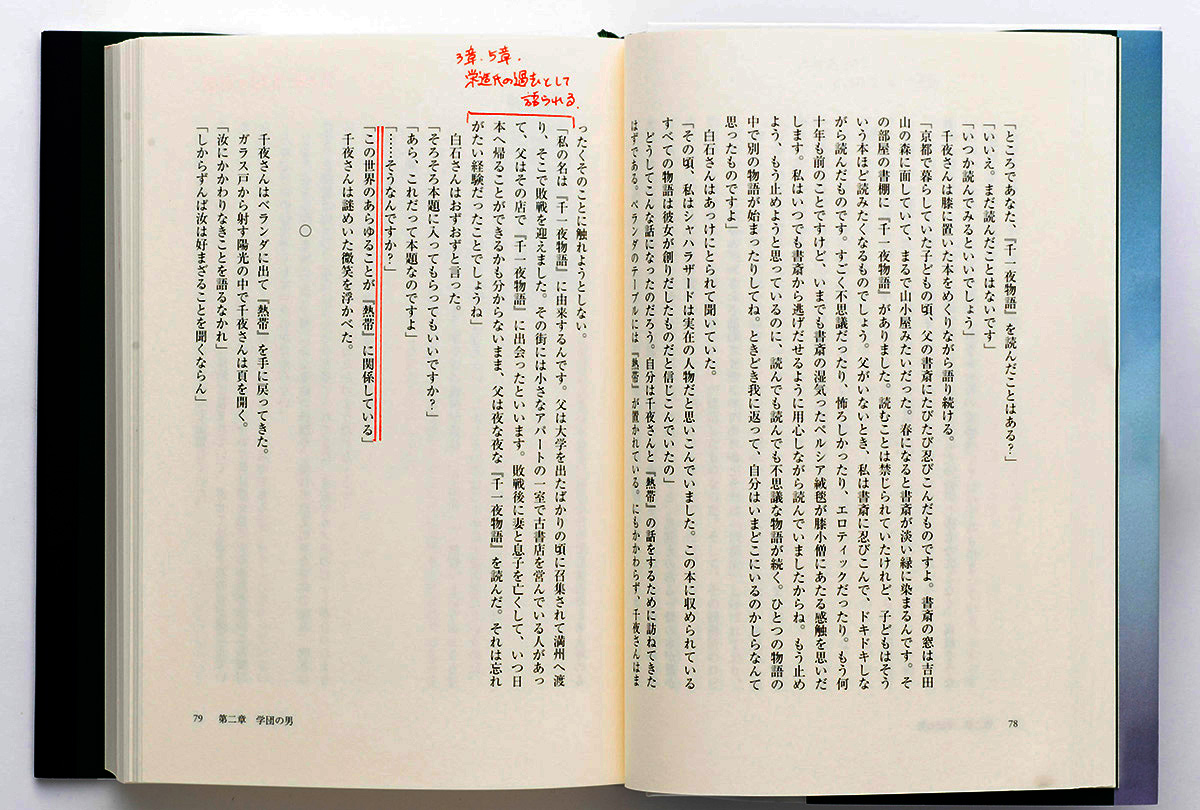 「ところであなた、『千一夜物語』を読んだことはある?」
「いいえ。まだ読んだことはないです」
「いつか読んでみるといいでしょう」
千夜さんは膝に置いた本をめくりながら語り続ける。
「京都で暮らしていた子どもの頃、父の書斎にたびたび忍びこんだものですよ。書斎の窓は吉田
山の森に面していて、まるで山小屋みたいだった。春になると書斎が淡い緑に染まるんです。そ
の部屋の書棚に『千一夜物語』がありました。読むことは禁じられていたけれど、子どもはそう
いう本ほど読みたくなるものでしょう。父がいないとき、私は書斎に忍びこんで、ドキドキしな
がら読んだものです。すごく不思議だったり、怖ろしかったり、エロティックだったり。もう何
十年も前のことですけど、いまでも書斎の湿気ったペルシア絨毯が膝小僧にあたる感触を思いだ
します。私はいつでも書斎から逃げだせるように用心しながら読んでいましたからね。もう止め
よう、もう止めようと思っているのに、読んでも読んでも不思議な物語が続く。ひとつの物語の
中で別の物語が始まったりしてね。ときどき我に返って、自分はいまどこにいるのかしらなんて
思ったものですよ」
白石さんはあっけにとられて聞いていた。
「その頃、私はシャハラザードは実在の人物だと思いこんでいました。この本に収められている
すべての物語は彼女が創りだしたものだと信じこんでいたの」
どうしてこんな話になったのだろう。自分は千夜さんと『熱帯』の話をするために訪ねてきた
はずである。ベランダのテーブルには『熱帯』が置かれている。にもかかわらず、千夜さんはま
78
3章、5章、
栄造氏の過去として
語られる。
ったくそのことに触れようとしない。
「私の名は『千一夜物語』に由来するんです。父は大学を出たばかりの頃に召集されて満州へ渡
り、そこで敗戦を迎えました。その街には小さなアパートの一室で古書店を営んでいる人があっ
て、父はその店で『千一夜物語』に出会ったといいます。敗戦後に妻と息子を亡くして、いつ日
本へ帰ることができるかも分からないまま、父は夜な夜な『千一夜物語』を読んだ。それは忘れ
がたい経験だったことでしょうね」
白石さんはおずおずと言った。
「そろそろ本題に入ってもらってもいいですか?」
「あら、これだって本題なのですよ」
「……そうなんですか?」
「この世界のあらゆることが『熱帯』に関係している」
千夜さんは謎めいた微笑を浮かべた。
○
千夜さんはベランダに出て『熱帯』を手に戻ってきた。
ガラス戸から射す陽光の中で千夜さんは頁を開く。
「汝にかかわりなきことを語るなかれ」
「しからずんば汝は好まざることを聞くならん」
79 第二章 学団の男